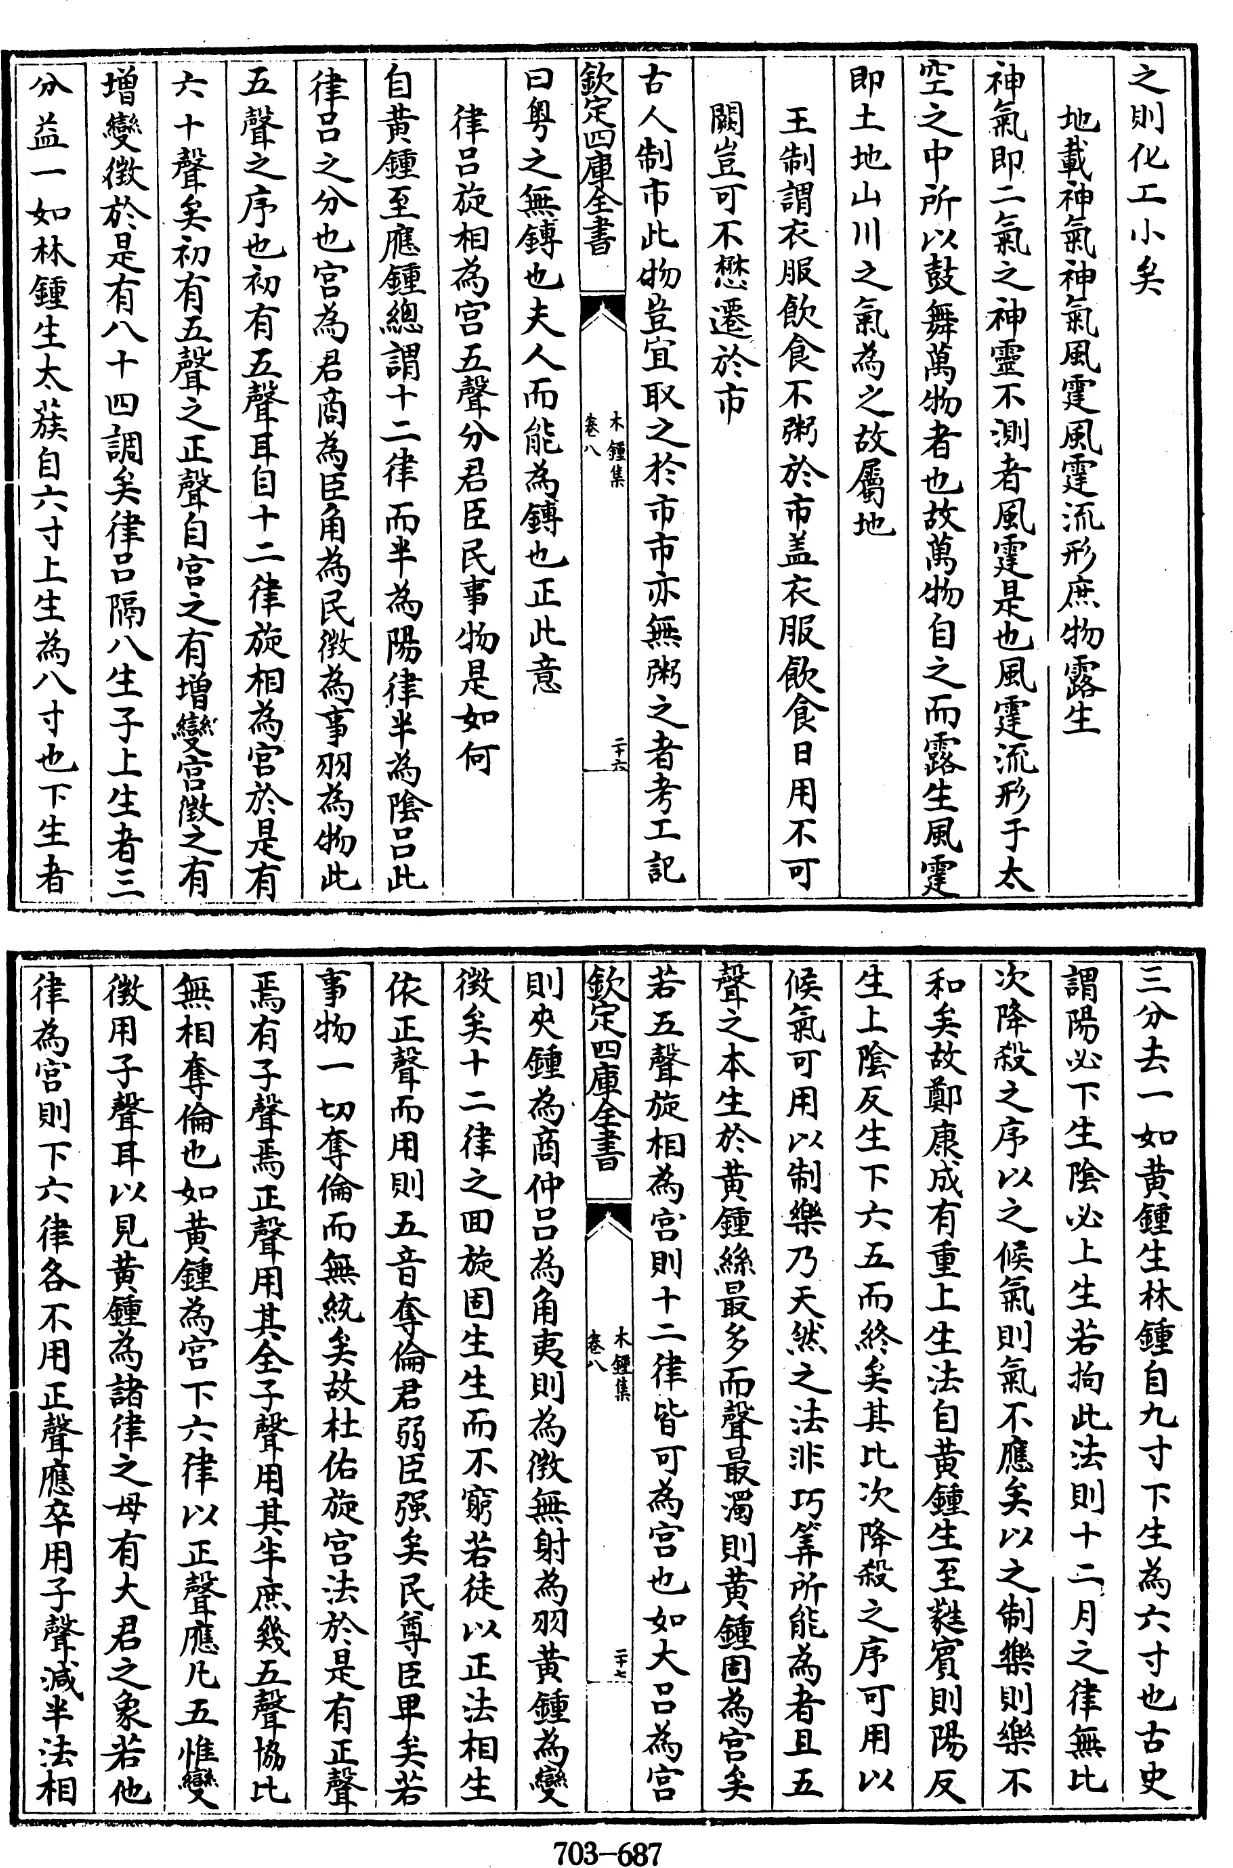 之則化工小矣
地載神氣神氣風霆風霆流形庶物露生
神氣即二氣之神靈不測者風霆是也風霆流形于太
空之中所以鼓舞萬物者也故萬物自之而露生風霆
即土地山川之氣為之故屬地
王制謂衣服飲食不粥於市盖衣服飲食日用不可
闕豈可不懋遷於市
古人制市此物豈宜取之於市市亦無粥之者考工記
欽定四庫全書
木鍾集
卷八
二十六
曰粤之無鎛也夫人而能為鎛也正此意
律吕旋相為宫五聲分君臣民事物是如何
自黄鍾至應鍾總謂十二律而半為陽律半為陰吕此
律吕之分也宫為君商為臣角為民徴為事羽為物此
五聲之序也初有五聲耳自十二律旋相為宫於是有
六十聲矣初有五聲之正聲自宫之有增變宫徴之有
增變徴於是有八十四調矣律吕隔八生子上生者三
分益一如林鍾生太蔟自六寸上生為八寸也下生者
三分去一如黄鍾生林鍾自九寸下生為六寸也古史
謂陽必下生陰必上生若拘此法則十二月之律無比
次降殺之序以之候氣則氣不應矣以之制樂則樂不
和矣故鄭康成有重上生法自黄鍾生至蕤賓則陽反
生上陰反生下六五而終矣其比次降殺之序可用以
候氣可用以制樂乃天然之法非巧筭所能為者且五
聲之本生於黄鍾絲最多而聲最濁則黄鍾固為宫矣
若五聲旋相為宫則十二律皆可為宫也如大吕為宫
欽定四庫全書
木鍾集
卷八
二十七
則夾鍾為商仲吕為角夷則為徴無射為羽黄鍾為變
徴矣十二律之回旋固生生而不窮若徒以正法相生
依正聲而用則五音奪倫君弱臣强矣民尊臣卑矣若
事物一切奪倫而無統矣故杜佑旋宫法於是有正聲
焉有子聲焉正聲用其全子聲用其半庶幾五聲協比
無相奪倫也如黄鍾為宫下六律以正聲應凡五惟變
徴用子聲耳以見黄鍾為諸律之母有大君之象若他
律為宫則下六律各不用正聲應卒用子聲減半法相
703-687